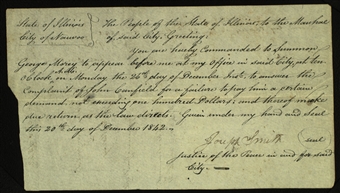 State of Illinois
City of Nauvoo
The People of the State of Illinois, to the Marshal
of Said City, Greeting.
You are hereby Commanded to Summon
George Morey to appear before me at my office in Said City, at ten
O'Clock on Monday the 26th day of December Inst. to answer the
Complaint of John Canfield for a failure to pay him a certain
demand not exceeding one hundred Dollars; and thereof make
due return, as the law directs. Given under my hand and seal
this 20th day of December 1842.
Joseph Smith seal
Justice of the Peace in and for said
City.